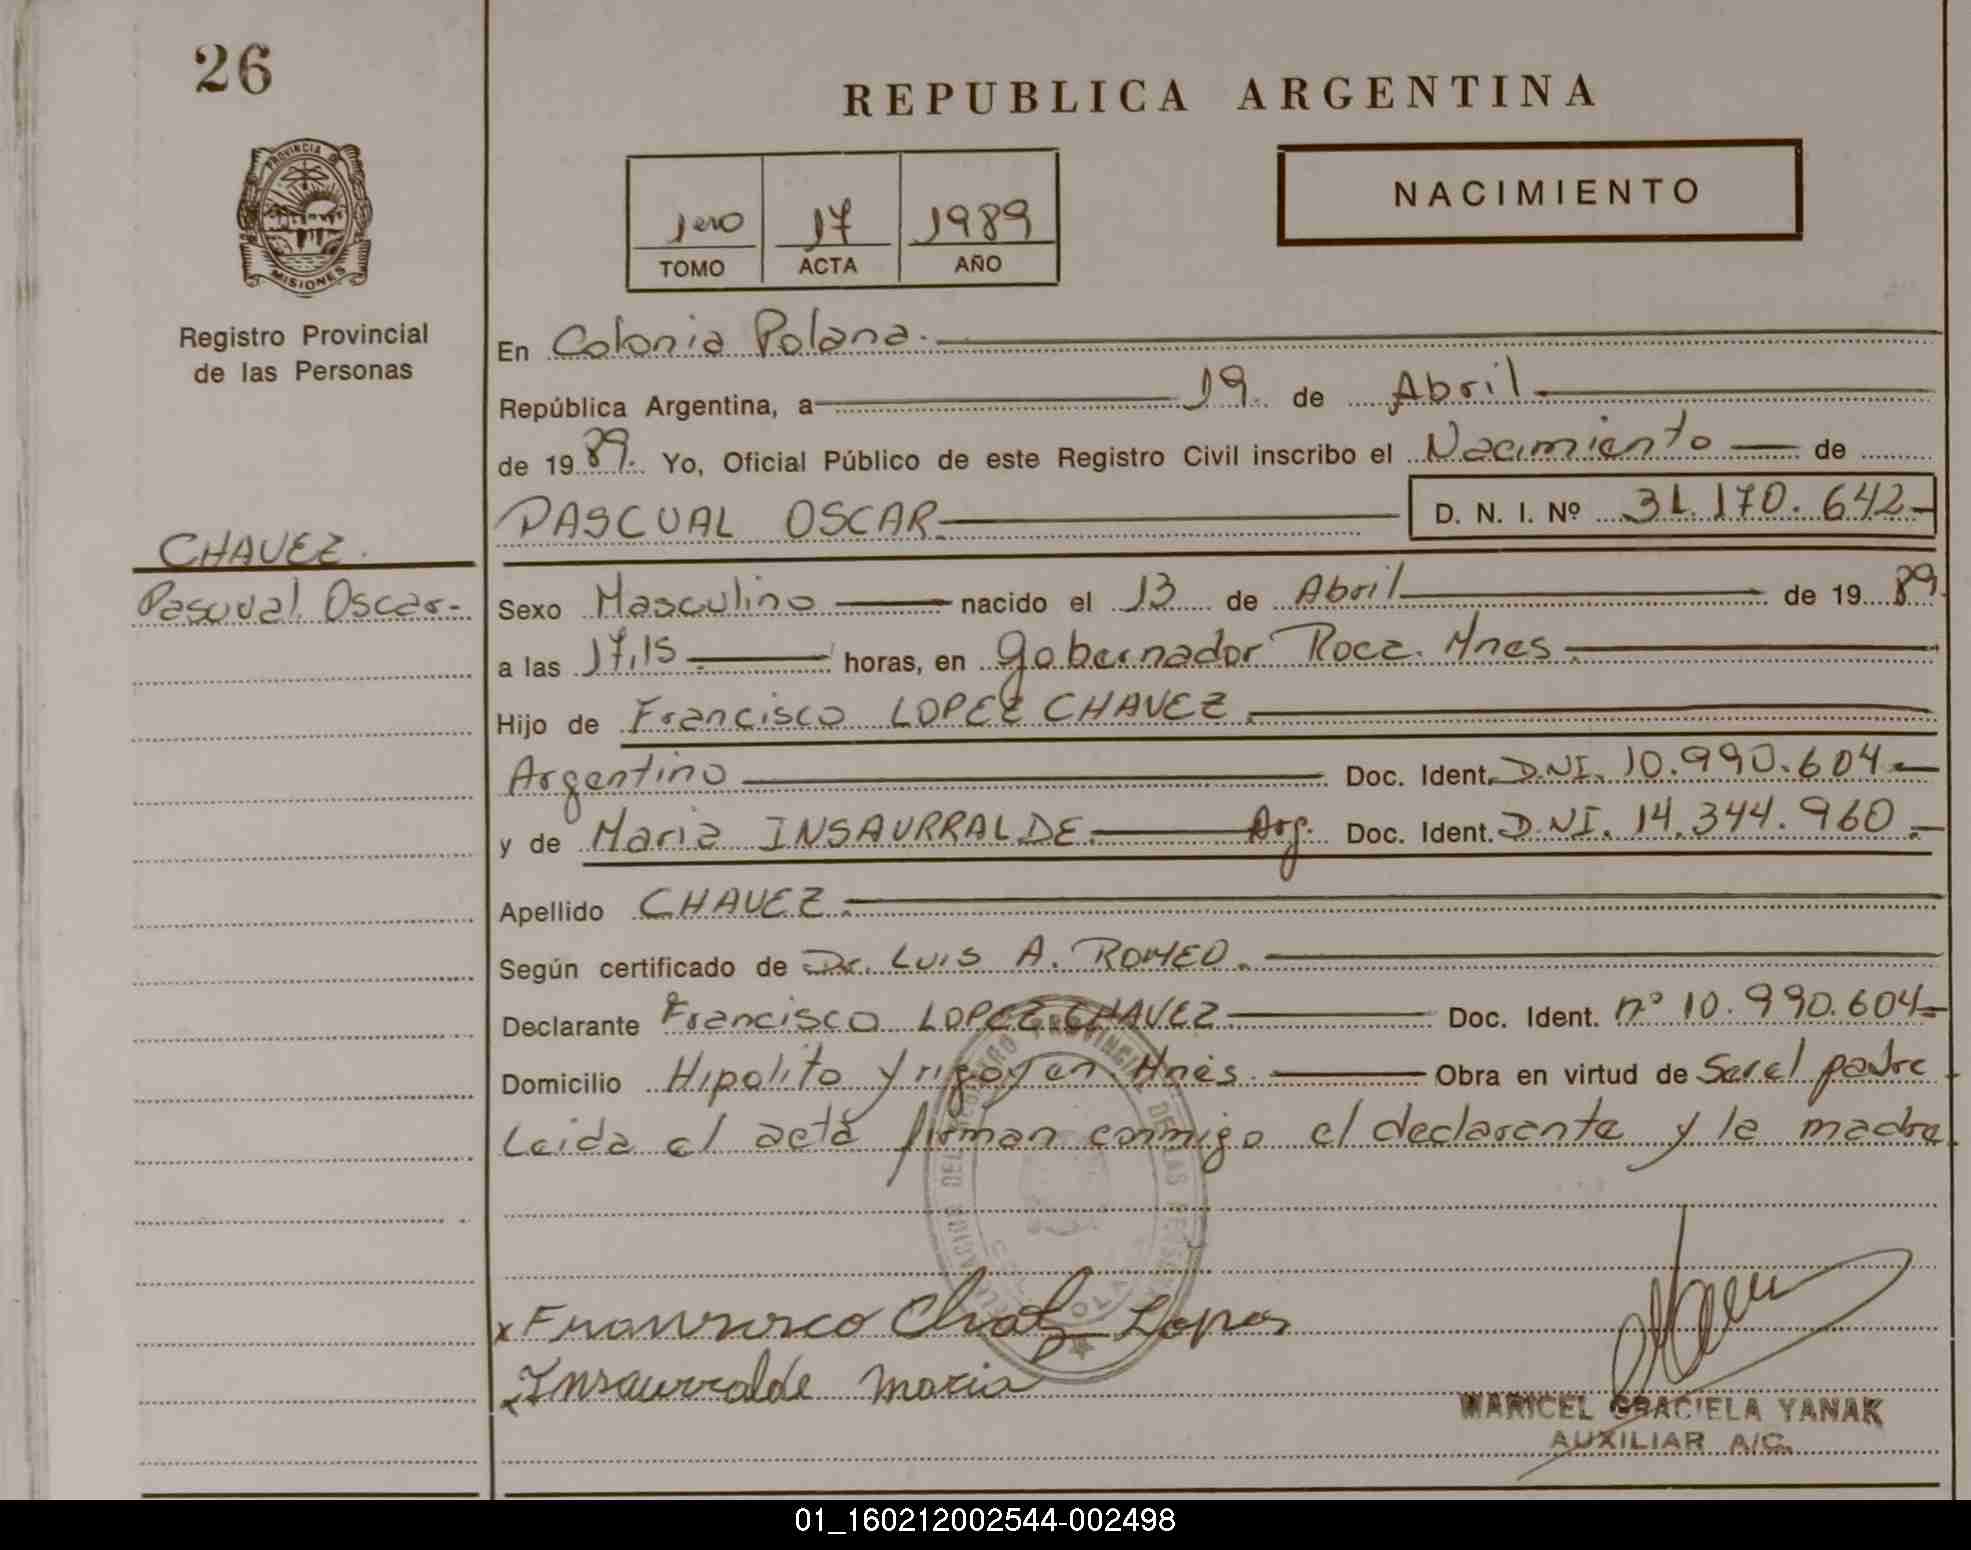 26
REPUBLICA ARGENTINA
PROVINCIA DE
MISIONES
Registro Provincial
de las Personas
1ero 17 1989
TOMO ACTA AÑO
NACIMIENTO
En Colonia Polana.
República Argentina, a 19 de Abril
de 1989. Yo, Oficial Público de este Registro Civil inscribo el Nacimiento de
PASCUAL OSCAR. D. N. I. Nº 31.170.642
CHAVEZ.
Pascual Oscar.
Sexo Masculino nacido el 13 de Abril de 1989
a las 17,15 horas, en Gobernador Roca. Mnes.
Hijo de Francisco LOPEZ CHAVEZ.
Argentino Doc. Ident. D.NI. 10.990.604
y de Maria INSAURRALDE. Arg. Doc. Ident. D.NI. 14.344.960.
Apellido CHAVEZ.
Según certificado de Dr. LUIS A. ROMEO.
Declarante Francisco LOPEZ CHAVEZ Doc. Ident. nº 10.990.604
Domicilio Hipolito Yrigoyen Mnes. Obra en virtud de Ser el padre
Leida el acta firman conmigo el declarante y la madre
x Francisco Lopes
x Insaurralde Maria
MARICEL GRACIELA YANAK
AUXILIAR A/C.
01_160212002544-002498